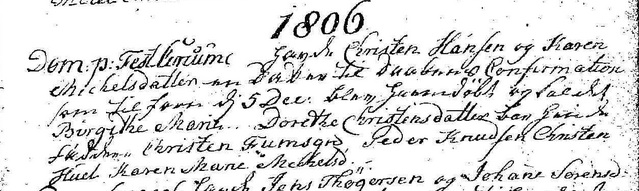 1806
Dom. p: Festivium Gav de Christen Hansen og Karen
Michelsdatter en Datter til Daabens Confirmation
som til forn d 5 Dec. blev hiemdöbt og kaldet
Birgithe Marie Dorethe Christensdatter bar hende
Fadder Christen Fumsgrd Peder Knudsen Christen
Huel Karen Marie Michelsd.
Jens Thögersen og Johane Sörensd